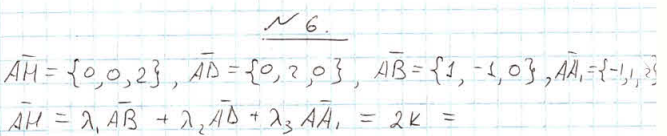 № 6.
A̅H̅ = {0, 0, 2}, A̅D̅ = {0, 2, 0}, A̅B̅ = {1, -1, 0}, A̅A̅₁ = {-1, 1, 2}
A̅H̅ = λ₁A̅B̅ + λ₂A̅D̅ + λ₃A̅A̅₁ = 2k =